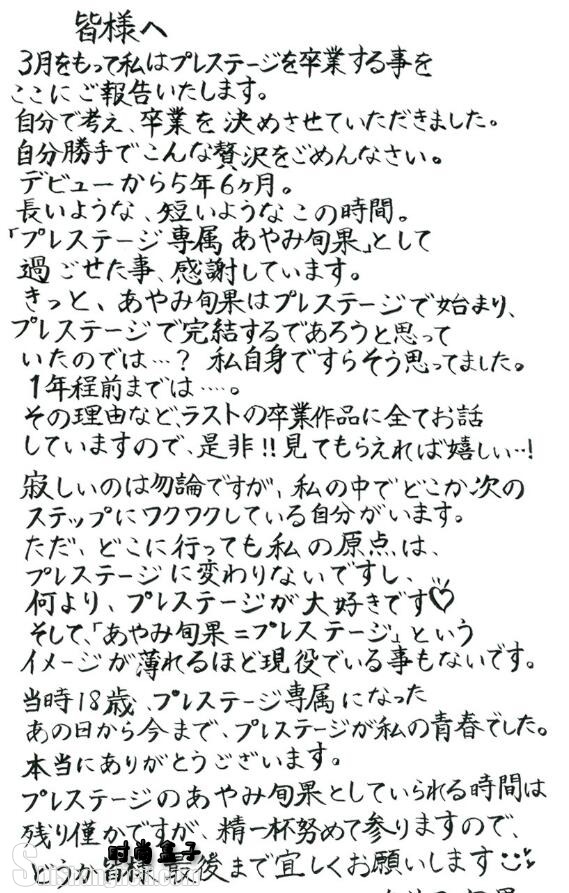 皆様へ
3月をもって私はプレステージを卒業する事を
ここにご報告いたします。
自分で考え、卒業を決めさせていただきました。
自分勝手でこんな贅沢をごめんなさい。
デビューから5年6ヶ月。
長いような、短いようなこの時間。
「プレステージ専属あやみ旬果」として
過ごせた事、感謝しています。
きっと、あやみ旬果はプレステージで始まり、
プレステージで完結するであろうと思って
いたのでは…？私自身ですらそう思ってました。
1年程前までは…。
その理由など、ラストの卒業作品に全てお話
していますので、是非!!見てもらえれば嬉しい…!
寂しいのは勿論ですが、私の中でどこか次の
ステップにワクワクしている自分がいます。
ただ、どこに行っても私の原点は、
プレステージに変わりないですし、
何より、プレステージが大好きです♡
そして、「あやみ旬果=プレステージ」という
イメージが薄れるほど現役でいる事もないです。
当時18歳、プレステージ専属になった
あの日から今まで、プレステージが私の青春でした。
本当にありがとうございます。
プレステージのあやみ旬果としていられる時間は
残り僅かですが、精一杯努めて参りますので、
时尚盒子
どうか皆様最後まで宜しくお願いします